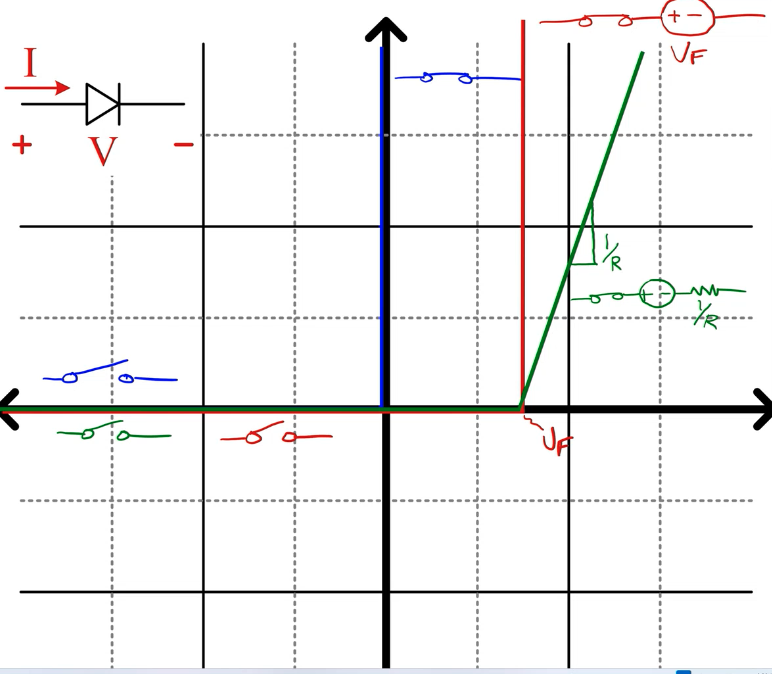 I
+ V −
+ −
VF
1/R
+ −
1/R
VF